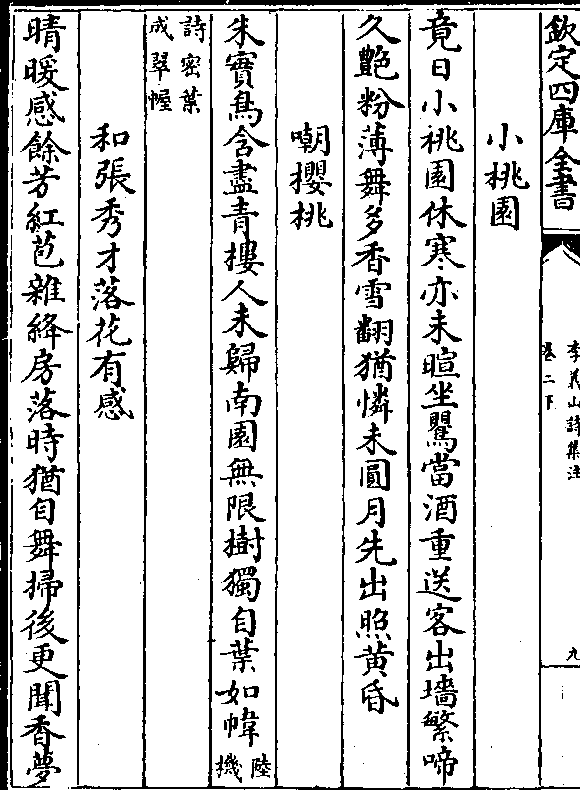 欽定四庫全書
李義山詩集注
卷二下
九
小桃園
竟日小桃園休寒亦未暄坐鶯當酒重送客出墻繁啼
久艷粉薄舞多香雪翻猶憐未圓月先出照黃昏
嘲櫻桃
朱實鳥含盡青樓人未歸南園無限樹獨自葉如幃陸機
詩密葉成翠幄
和張秀才落花有感
晴暖感餘芳紅苞雜絳房落時猶自舞掃後更聞香夢